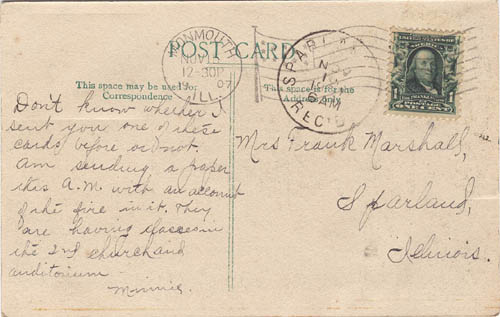 POST CARD
MONMOUTH
NOV 15
12-30P
07
ILL.
SPARL
NOV
REC'D
This space may be used for
Correspondence
This space is for the
Address only
Don't know whether I
sent you one of these
cards before or not.
Am sending a paper
this A.M. with an account
of the fire in it. They
are having classes in
the 2nd church and
auditorium
Minnie.
Mrs Frank Marshall,
Sparland,
Illinois.